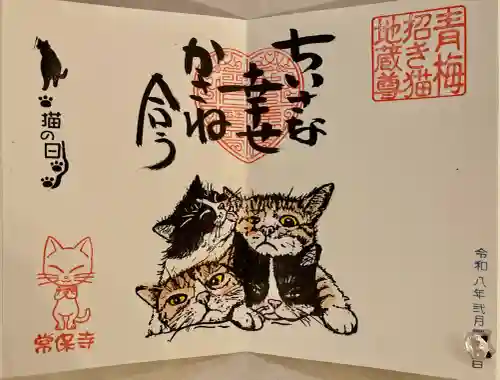 青梅
招き猫
地蔵尊
ちいさな
幸せ
かさね
合う
猫の日
常保寺
令和八年弐月
日